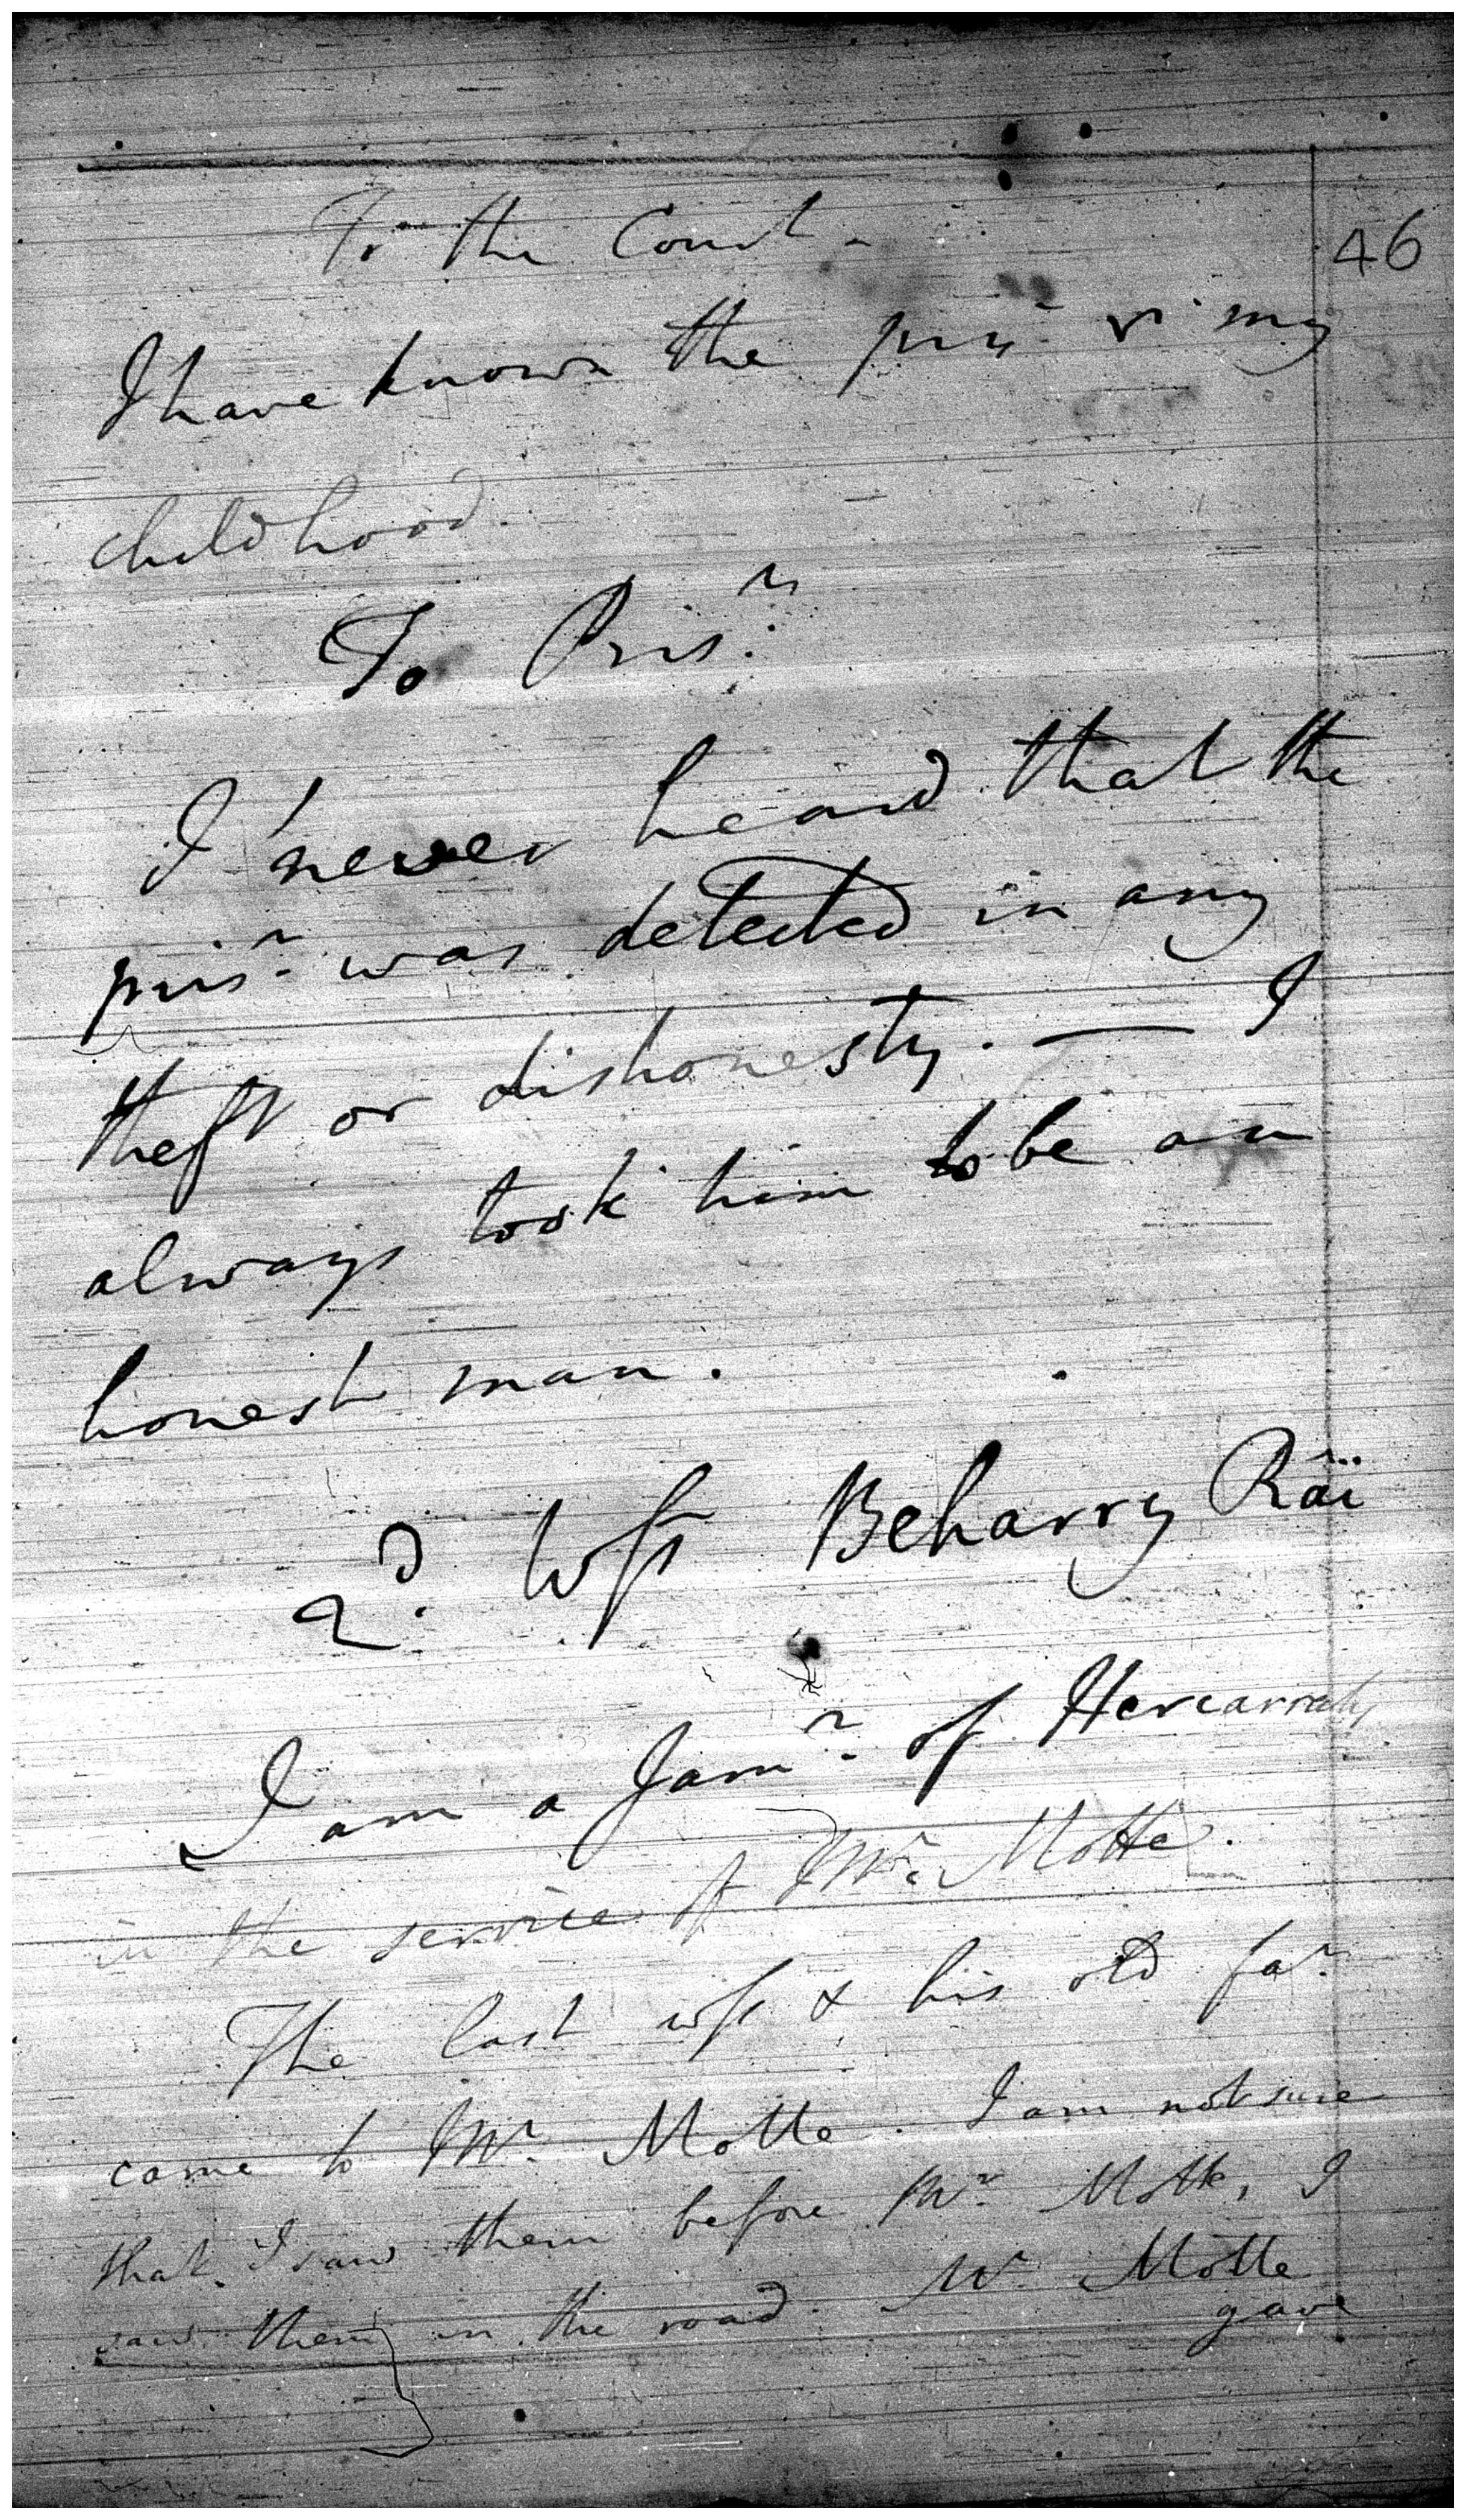 To the Court -
46
I have known the prisr. fr my
childhood.
To Prisr.
I never heard that the
prisr. was detected in any
theft or dishonesty. — I
always took him to be an
honest man.
2d. Wss Beharry Räi
I am a Jamr. of Hercarrahs
in the service of Mr. Motte.
The last wss & his old far.
came to Mr. Motte. I am not sure
that I saw them before Mr. Motte, I
saw them in the road. Mr. Motte
gave